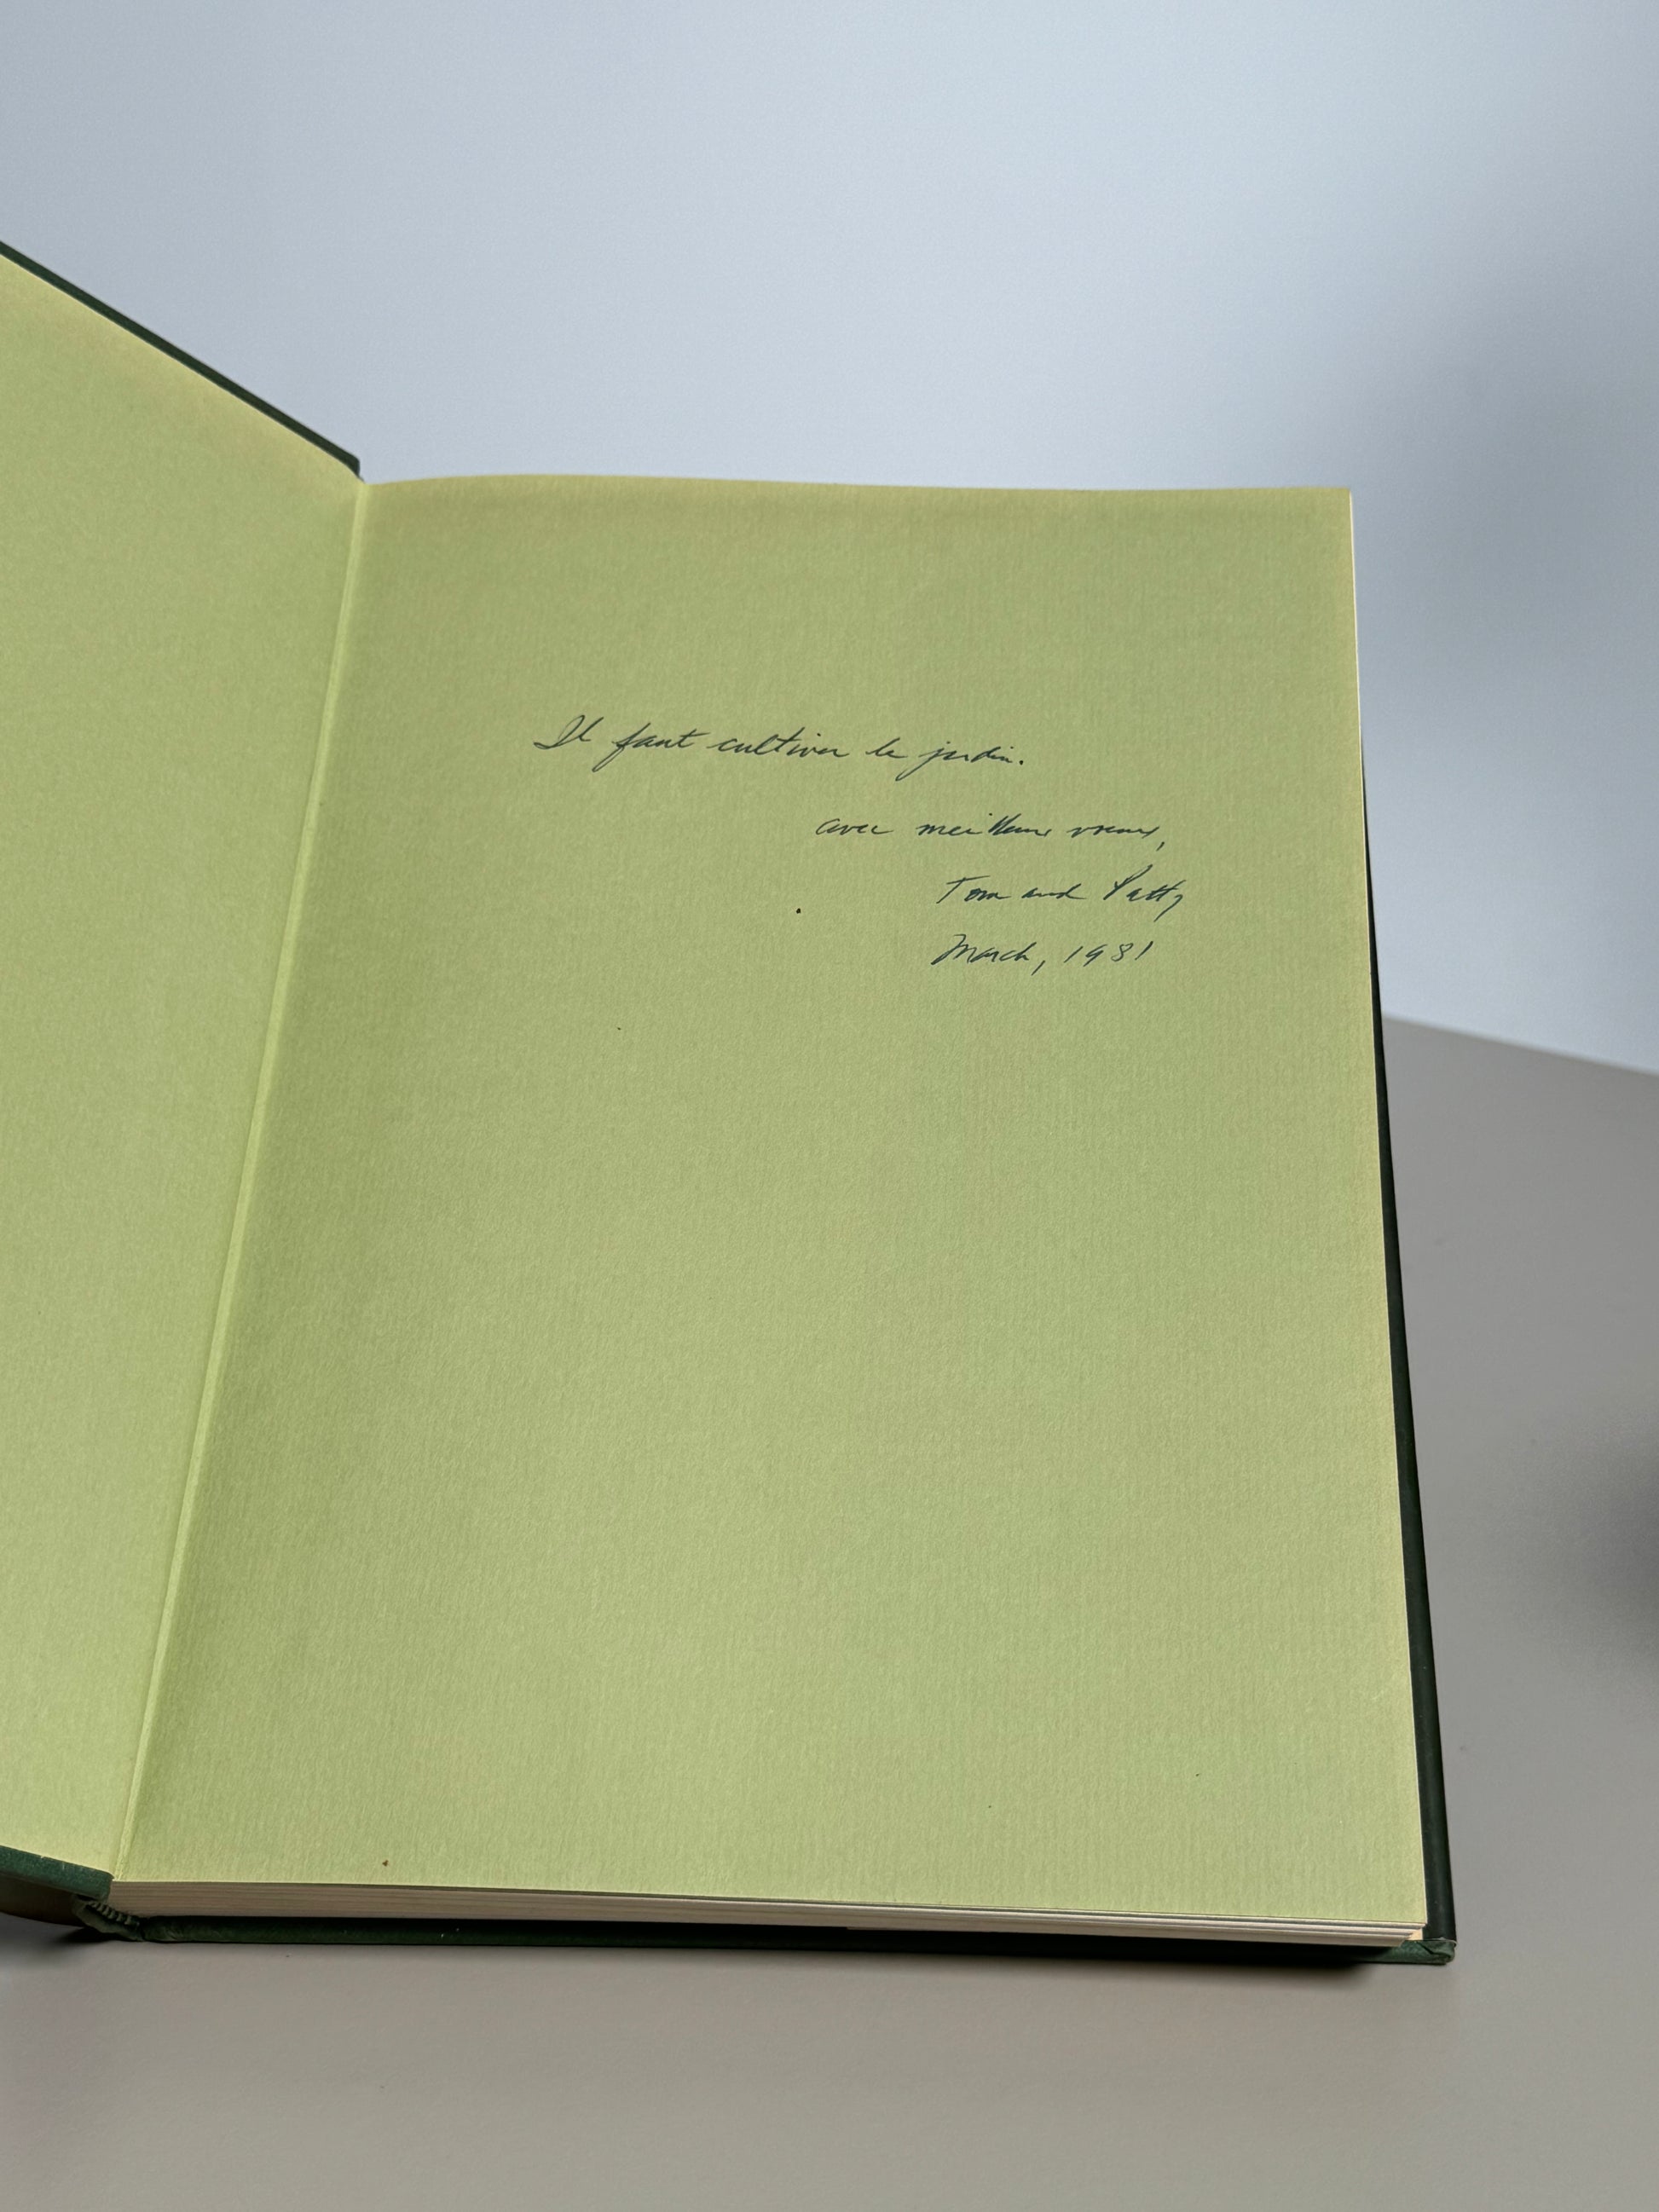 Il faut cultiver le jardin.
avec meilleurs voeux,
Tom and Patty
March, 1981